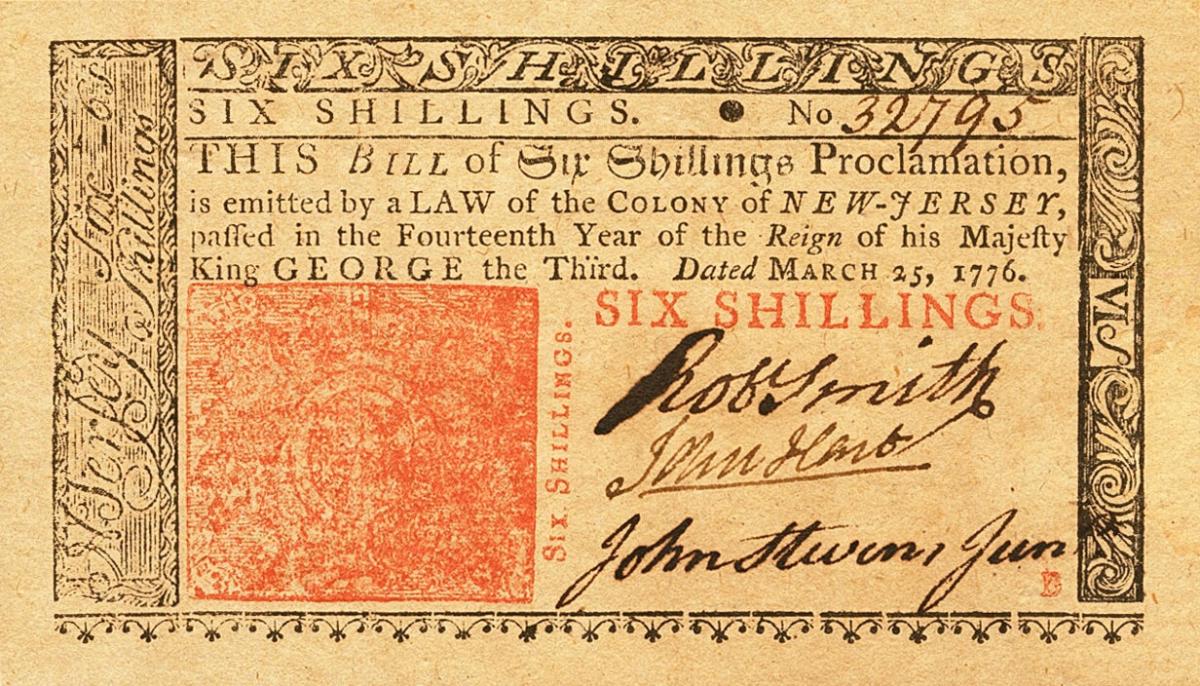 SIX SHILLINGS
SIX SHILLINGS. No 32795
THIS BILL of Six Shillings Proclamation,
is emitted by a LAW of the COLONY of NEW-JERSEY,
paſſed in the Fourteenth Year of the Reign of his Majeſty
King GEORGE the Third. Dated MARCH 25, 1776.
SIX SHILLINGS.
SIX SHILLINGS.
Robt Smith
John Hart
John Stevens Jun
Shillings
VI S